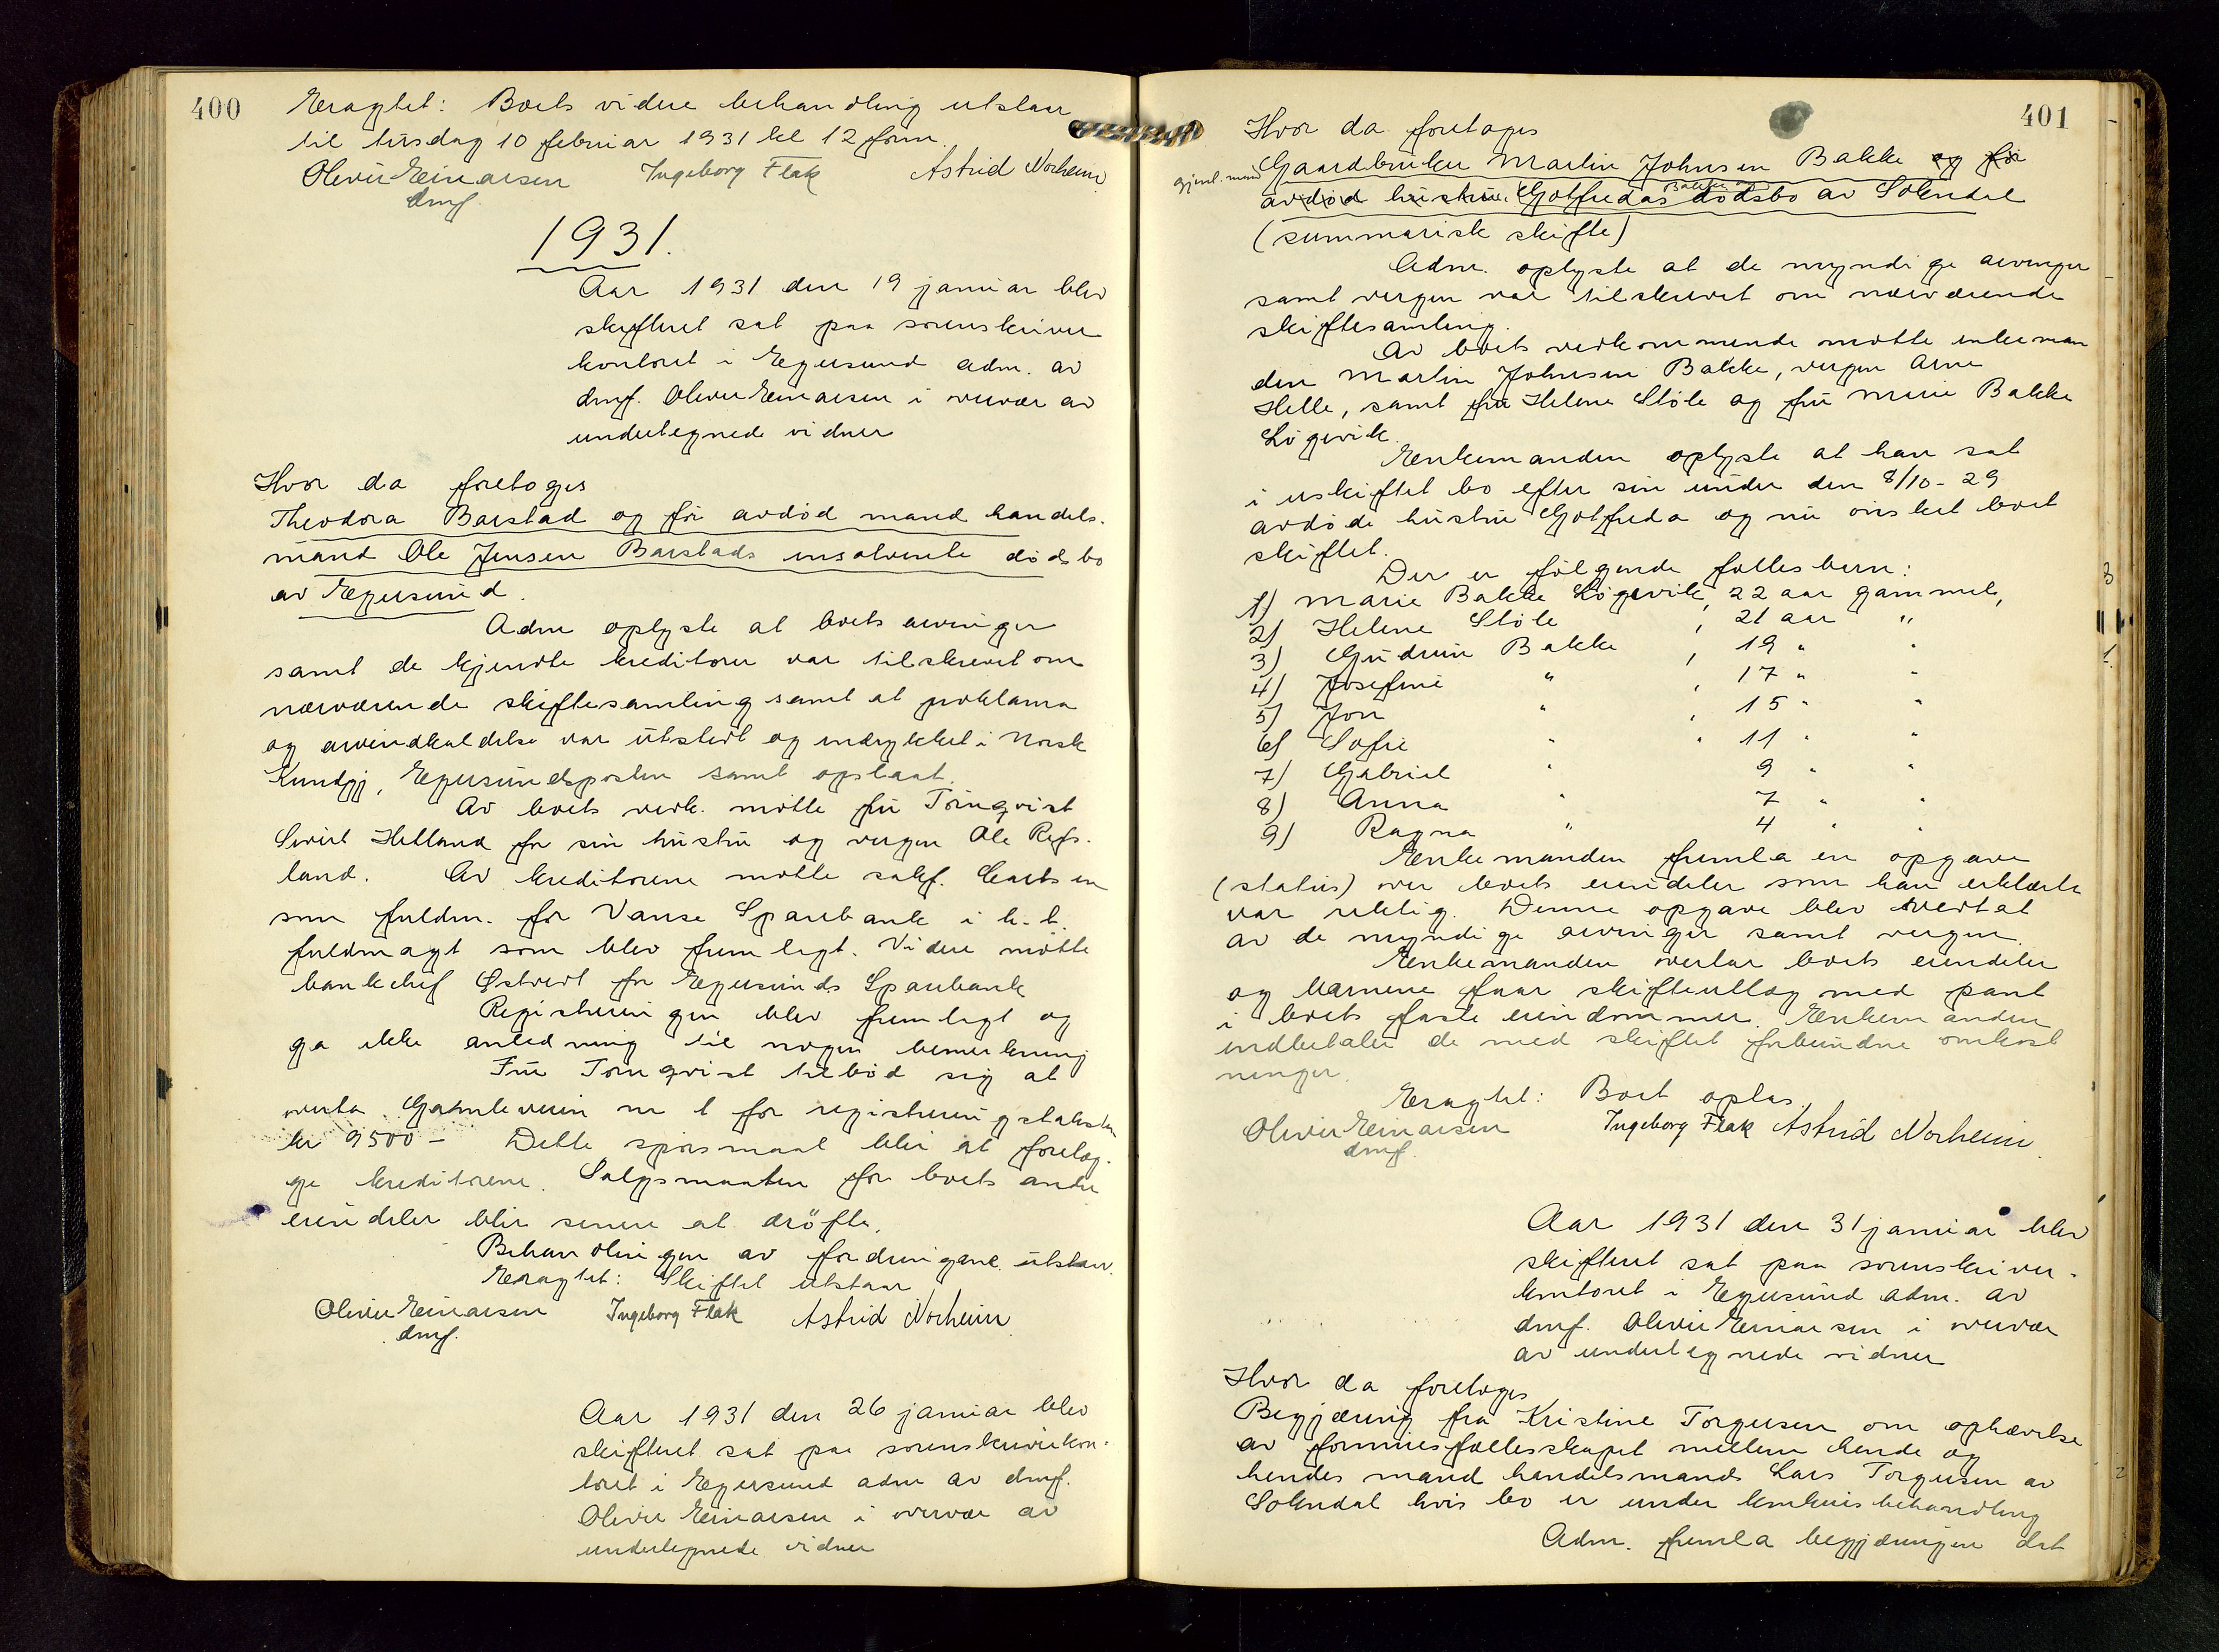 400
Eragtet: Boets videre behandling utstaar
til tirsdag 10 februar 1931 kl 12 form.
Olivir Einarsen Ingeborg Flak Astrid Norheim
dmf.
1931.
Aar 1931 den 19 januar blev
skifteret sat paa sorenskriver
kontoret i Egersund adm. av
dmf. Olivir Einarsen i overvær av
undertegnede vidner
Hvor da foretoges
Theodora Barstad og før avdød mand handels-
mand Ole Jensen Barstads insolvente dødsbo
av Egersund.
Adm oplyste at boets arvinger
samt de kjendte kreditorer var tilskrevet om
nærværende skiftesamling samt at proklama
og arveindkaldelse var utstedt og indrykket i Norsk
Kundgj, Egersundsposten samt opslaat.
Av boets vedk. møtte fru Törnqvist
Sivert Helland for sin hustru og vergen Ole Refs-
land. Av kreditorene møtte sakf.
som fuldm. for Vanse Sparebank i h.t.
fuldmagt som blev fremlagt. Videre møtte
bankchef Østvedt for Egersunds Sparebank
Registreringen blev fremlagt og
ga ikke anledning til nogen bemerkning
Fru Törnqvist tilbød sig at
overta Gamleveien nr 1 for registreringstaksten
kr 9500 – Dette spørsmaal blir at forelæg-
ge kreditorene. Salgsmaaten for boets andre
eiendeler blir senere at drøfte.
Behandlingen av fordringene utstaar.
Eragtet: Skiftet utstaar
Olivir Einarsen Ingeborg Flak Astrid Norheim
dmf.
Aar 1931 den 26 januar blev
skifteret sat paa sorenskriverkon-
toret i Egersund adm av dmf.
Olivir Einarsen i overvær av
undertegnede vidner
401
Hvor da foretoges
Gaardbruker Martin Johnsen Bakke og før
gjenl. mand
avdød hustru Gotfredas Bakkes dødsbo av Sokndal
(summarisk skifte)
Adm. oplyste at de myndige arvinger
samt vergen var tilskrevet om nærværende
skiftesamling.
Av boets vedkommende møtte enkeman
den Martin Johnsen Bakke, vergen Arne
Helle, samt fru Helene Støle og fru Marie Bakke
Løgevik.
Enkemanden oplyste at han sat
i uskiftet bo efter sin under den 8/10-29
avdøde hustru Gotfreda og nu ønsket boet
skiftet.
Der er følgende fellesbarn:
1) Marie Bakke Løgevik, 22 aar gammel,
2) Helene Støle , 21 aar "
3) Gudrun Bakke , 19 " "
4) Josefine " , 17 " "
5) Jon " , 15 " "
6) Sofie " , 11 " "
7) Gabriel " 9 " "
8) Anna " 7 " "
9) Ragna " 4 " "
Enkemanden fremla en opgave
(status) over boets eiendeler som han erklærte
var riktig. Denne opgave blev vedtat
av de myndige arvinger samt vergen.
Enkemanden overtar boets eiendeler
og barnene faar skifteutlæg med pant
i boets faste eiendommer. Enkemanden
indbetaler de med skiftet forbundne omkost
ninger.
Eragtet: Boet oplas.
Olivir Einarsen Ingeborg Flak Astrid Norheim.
dmf.
Aar 1931 den 31 januar blev
skifteret sat paa sorenskriver-
kontoret i Egersund adm. av
dmf. Olivir Einarsen i overvær
av undertegnede vidner
Hvor da foretoges
Begjæring fra Kristine Torgersen om ophævelse
av formuesfællesskapet mellem hende og
hendes mand handelsmands Lars Torgersen av
Sokndal hvis bo er under konkursbehandling
Adm. fremla begjæringen dat